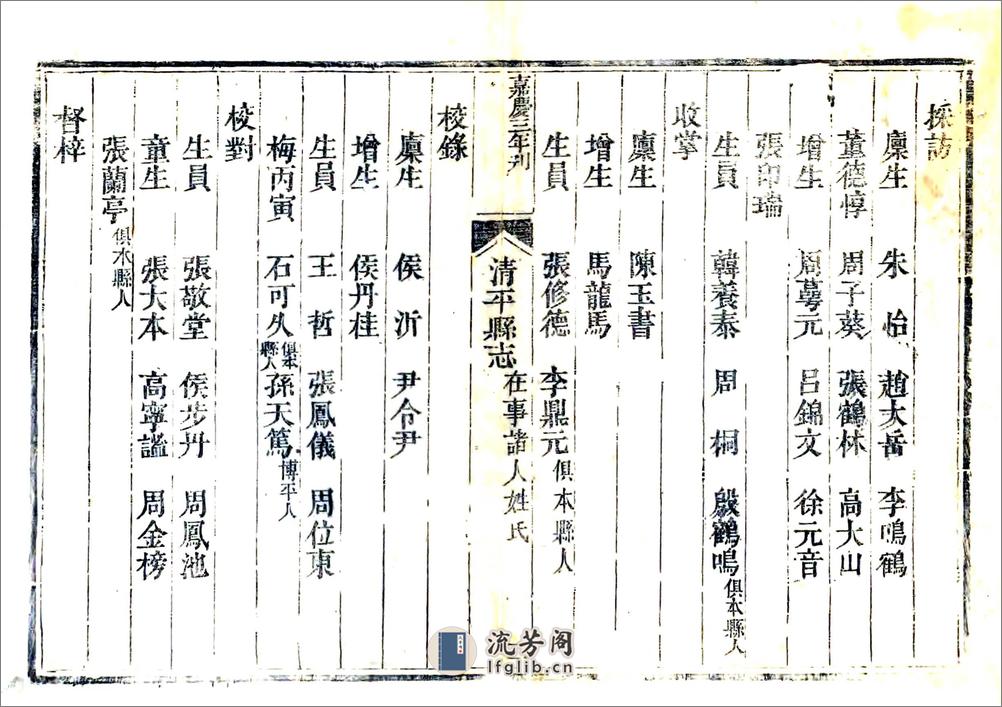 採訪
廩生 朱怡 趙大岳 李鳴鶴
董德惇 周子葵 張鶴林 高大山
增生 周蕚元 呂錦文 徐元音
張印瑞
生員 韓養泰 周桐 殷鶴鳴 俱本縣人
收掌
廩生 陳玉書
增生 馬龍馬
生員 張修德 李鼎元 俱本縣人
嘉慶三年刋
清平縣志 在事諸人姓氏
校錄
廩生 侯沂 尹令尹
增生 侯丹桂
生員 王哲 張鳳儀 周位東
梅丙寅 石可久 俱本縣人 孫天篤 博平人
校對
生員 張敬堂 侯步丹 周鳳池
童生 張大本 高寧謐 周金榜
張蘭亭 俱本縣人
督梓
流芳阁
lfglib.cn